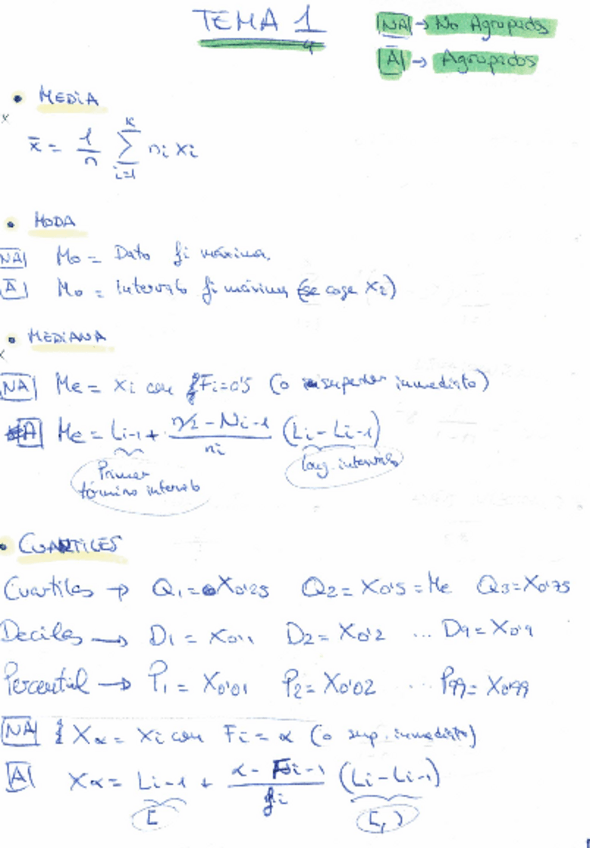 TEMA 1
NA → No Agrupados
A → Agrupados
• MEDIA
x̄ = 1/n ∑_{i=1}^{k} ni xi
• MODA
NA Mo = Dato fi máxima.
A Mo = intervalo fi máxima (se coge x2)
• MEDIANA
NA Me = xi con Fi=0'5 (o superior inmediato)
A Me = Li-1 + (n/2 - Ni-1)/ni (Li - Li-1)
Primer término intervalo
long. intervalo
• CUARTILES
Cuartiles → Q1 = X0'25 Q2 = X0'5 = Me Q3 = X0'75
Deciles → D1 = X0'1 D2 = X0'2 ... D9 = X0'9
Percentil → P1 = X0'01 P2 = X0'02 ... P99 = X0'99
NA Xα = Xi con Fi = α (o sup. inmediato)
A Xα = Li-1 + (α - Fi-1)/fi (Li - Li-1)
[
[, )